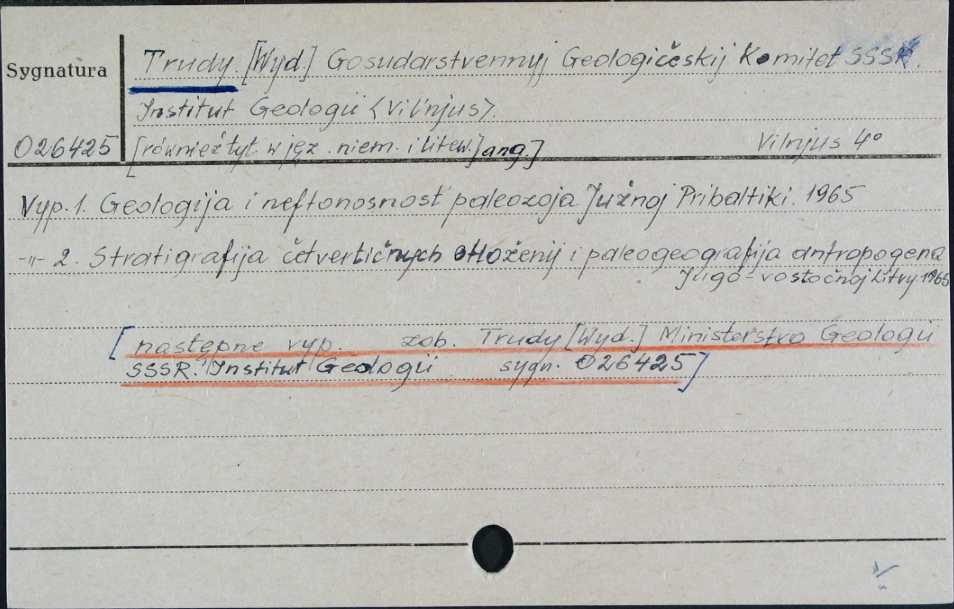 Sygnatura
Trudy. [Wyd.] Gosudarstvennyj Geologičeskij Komitet SSSR.
Institut Geologii <Vil'njus>.
O26425 [również tyt. w jęz. niem. i litew.] ang.] Vilnjus 4°
Vyp. 1. Geologija i neftonosnost' paleozoja Južnoj Pribaltiki. 1965
-"- 2. Stratigrafija četvertičnych otłoženij i paleogeografija antropogena
Jugo-vostočnoj Litvy. 1965
[następne vyp. zob. Trudy [Wyd.] Ministerstvo Geologii
SSSR. Institut Geologii sygn. O26425]